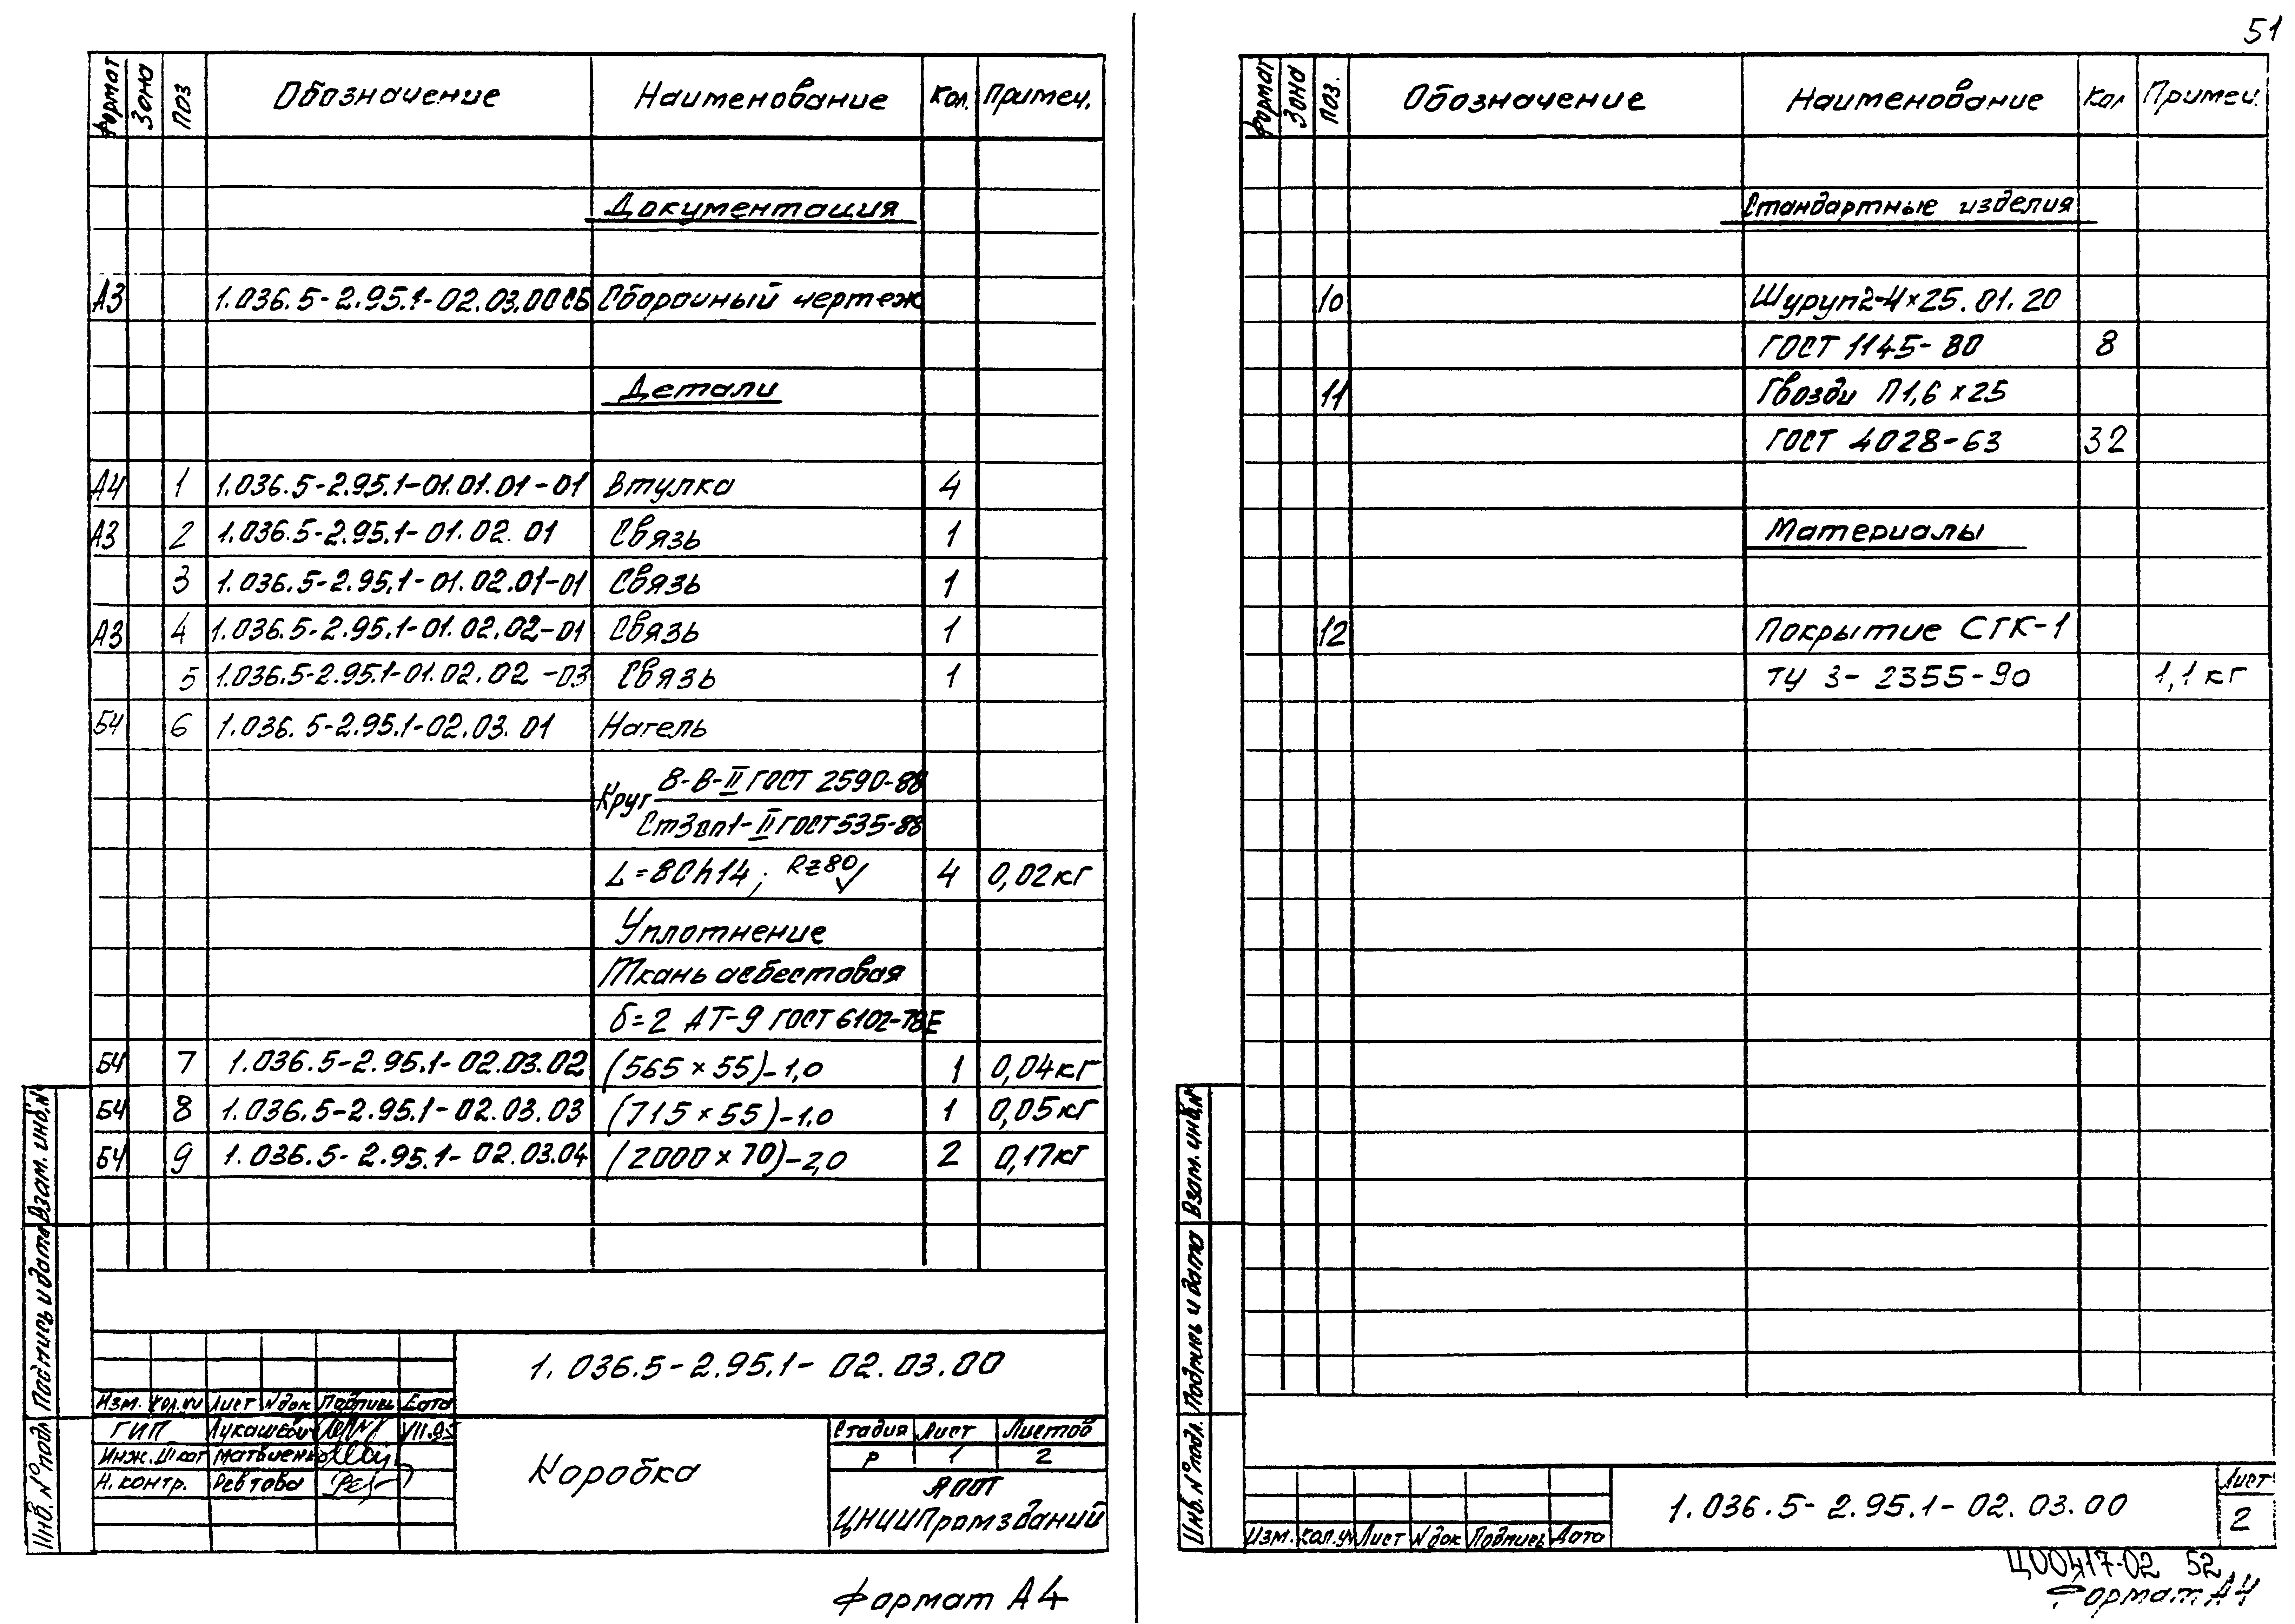 51
Формат Зона Поз Обозначение Наименование Кол. Примеч.
Документация
А3 1.036.5-2.95.1-02.03.00СБ Сборочный чертеж
Детали
А4 1 1.036.5-2.95.1-01.01.01-01 Втулка 4
А3 2 1.036.5-2.95.1-01.02.01 Связь 1
3 1.036.5-2.95.1-01.02.01-01 Связь 1
А3 4 1.036.5-2.95.1-01.02.02-01 Связь 1
5 1.036.5-2.95.1-01.02.02-03 Связь 1
Б4 6 1.036.5-2.95.1-02.03.01 Нагель
Круг 8-В-II ГОСТ 2590-88
Ст3сп1-II ГОСТ 535-88
L=80h14; Rz80 4 0,02кг
Уплотнение
Ткань асбестовая
δ=2 АТ-9 ГОСТ 6102-78Е
Б4 7 1.036.5-2.95.1-02.03.02 (565×55)-1,0 1 0,04кг
Б4 8 1.036.5-2.95.1-02.03.03 (715×55)-1,0 1 0,05кг
Б4 9 1.036.5-2.95.1-02.03.04 (2000×70)-2,0 2 0,17кг
Инв. № подл Подпись и дата Взам. инв.№
1.036.5-2.95.1-02.03.00
Изм. Кол.уч Лист №док Подпись Дата
ГИП Лукашевич VII.95
Инж. Iкат Матвиенко
Н.контр. Ревтова
Коробка
Стадия Лист Листов
Р 1 2
АООТ
ЦНИИПромзданий
Формат А4
Формат Зона Поз. Обозначение Наименование Кол Примеч.
Стандартные изделия
10 Шуруп 2-4×25.01.20
ГОСТ 1145-80 8
11 Гвозди П1,6×25
ГОСТ 4028-63 32
Материалы
12 Покрытие СГК-1
ТУ 3-2355-90 1,1кг
Инв. № подл. Подпись и дата Взам. инв.№
Изм. Кол.уч Лист №док Подпись Дата
1.036.5-2.95.1-02.03.00
Лист
2
Ц00417-02 52
Формат А4